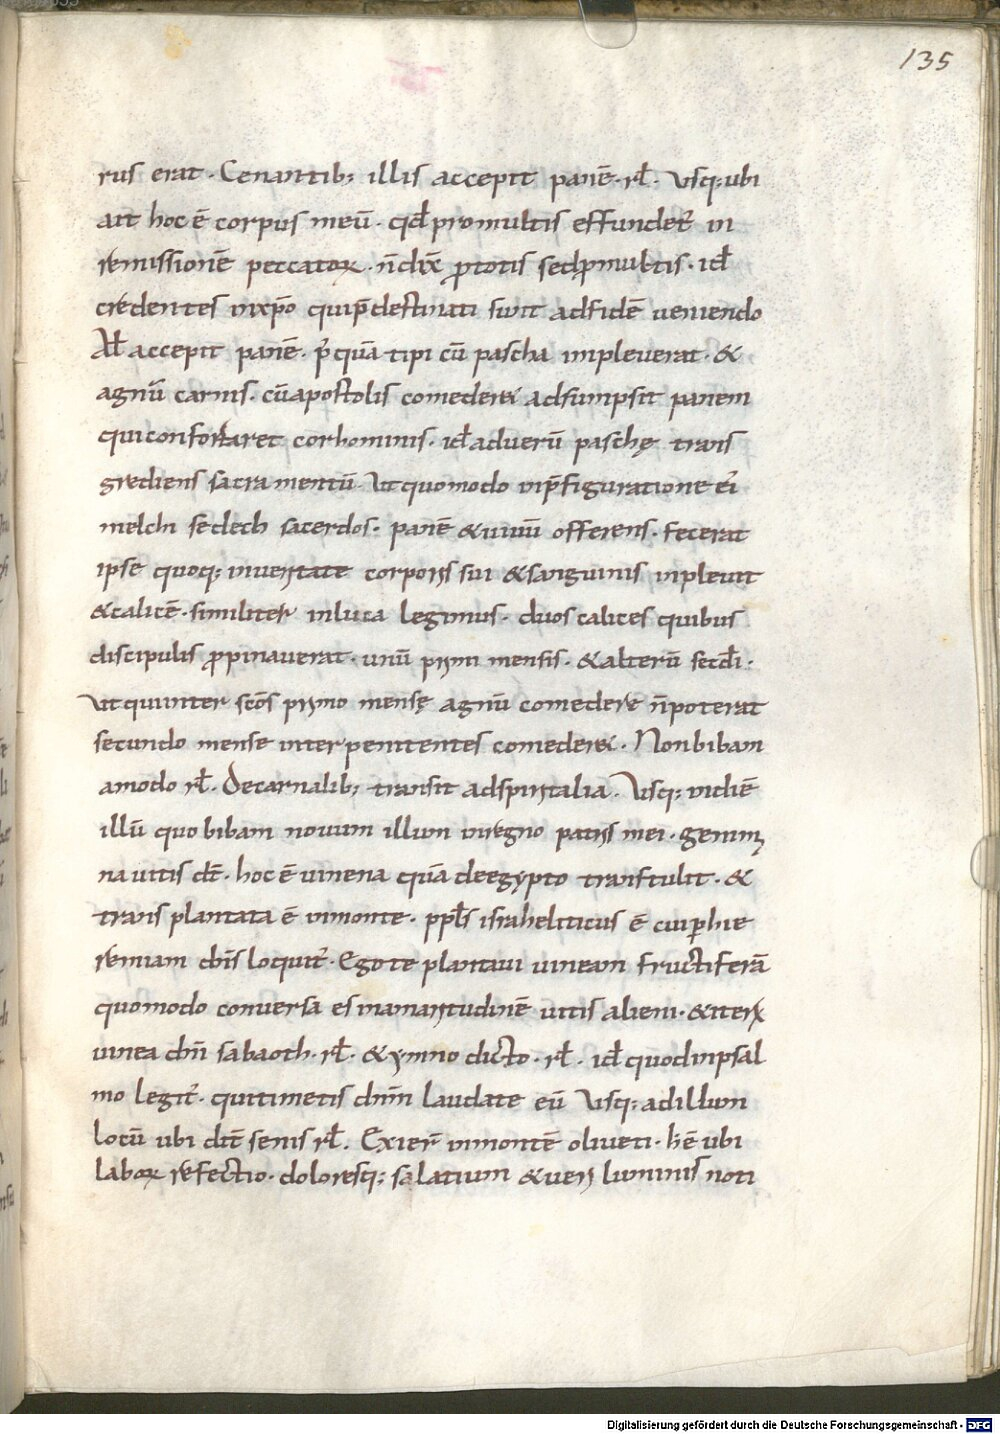 135
rus erat · Cenantib; illis accepit panē · rƚ · Vsq; ubi
ait hoc ē corpus meū · qđ pro multis effundet̄ in
remissionē peccatoꝝ · n̄ dix̄ ꝓ totis sed ꝓ multis · iđ
credentes in xp̄o qui p̄destinati sunt ad fidē veniendo
Aƚ accepit panē · p̄quā tipicū pascha impleverat · &
agnū carnis · cū apostolis comederet adsumpsit panem
qui confortaret cor hominis · iđ ad uerū paschę trans
grediens sacramentū · Ut quomodo in p̄figuratione ei
melchisedech sacerdos · panē & uinū offerens · fecerat
ipse quoq; in veritate corporis sui & sanguinis inplevit
& calicē · similiter in luca legimus · duos calices quibus
discipulis ꝓpinaverat · unū primi mensis · & alterū secđi ·
Ut qui inter scōs primo mensę agnū comedere n̄ poterat
secundo mense inter penitentes comederet · Non bibam
amodo rƚ · De carnalib; transit ad spiritalia · Usq; in diē
illū quo bibam novum illum in regno patris mei · gemin
na uitis dt̄ · hoc ē uinena quā de egypto transtulit · &
transplantata ē in monte · ppƚs israheliticus ē cui per hie
remiam dn̄s loquit̄ · Ego te plantavi uineam fructiferā
quomodo conversa es in amaritudinē uitis alieni · & iterū
uinea dn̄i sabaoth · rƚ · & ymno dicto · rƚ · iđ quod in psal
mo legit̄ · qui timetis dn̄m laudate eū Usq; ad illum
locū ubi dic̄ senis rƚ · Exier̄ in montē oliveti · h̄ ē ubi
laboꝝ refectio · doloresq; salatium & ueri luminis noti
Digitalisierung gefördert durch die Deutsche Forschungsgemeinschaft - DFG